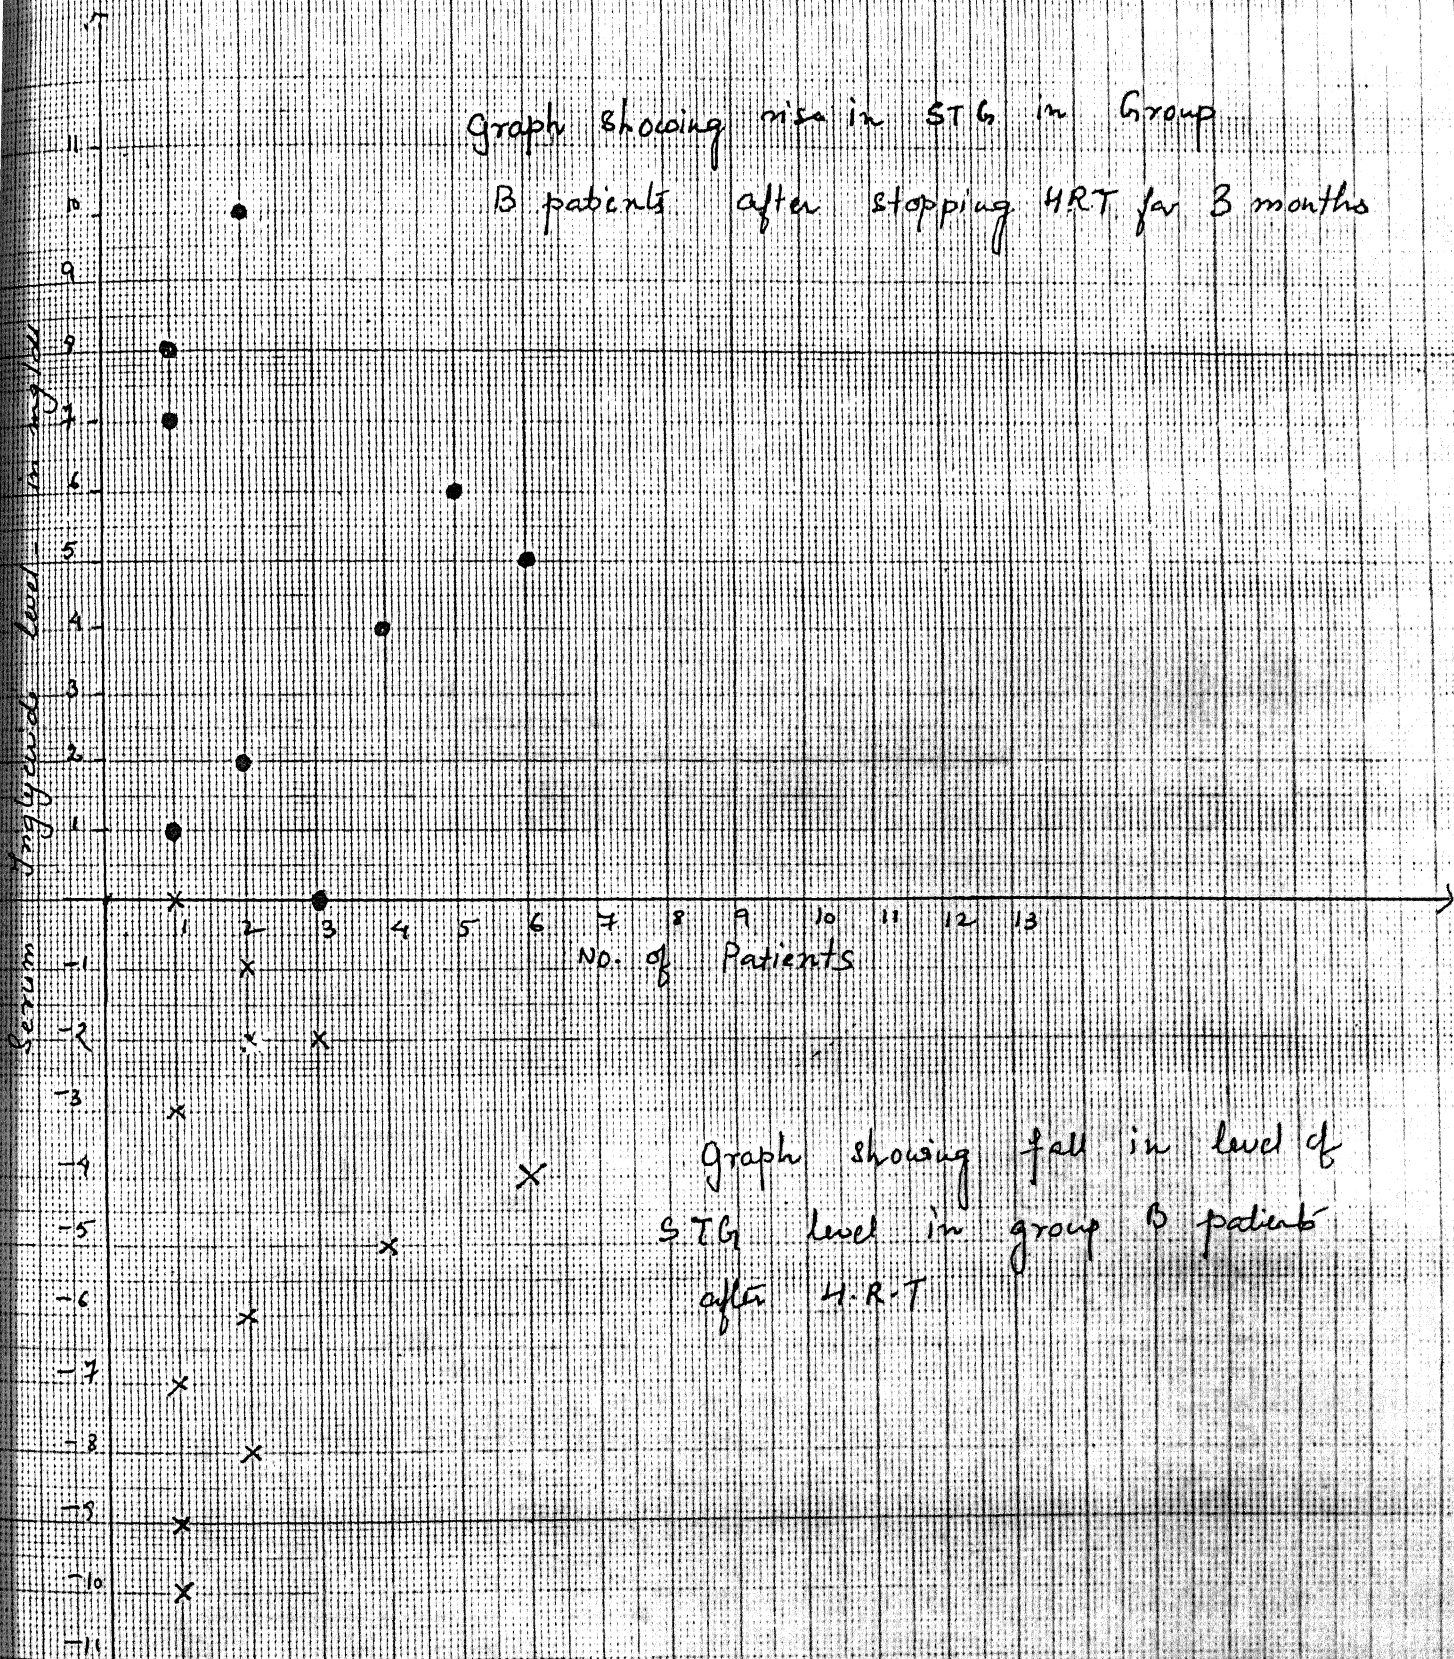 Graph showing rise in STG in Group
B patients after stopping H.R.T. for 3 months
11
10
9
8
7
6
5
4
3
2
1
Serum Triglyceride level in mg/dl
1 2 3 4 5 6 7 8 9 10 11 12 13
No. of Patients
-1
-2
-3
-4
-5
-6
-7
-8
-9
-10
-11
Graph showing fall in level of
STG level in group B patients
after H.R.T